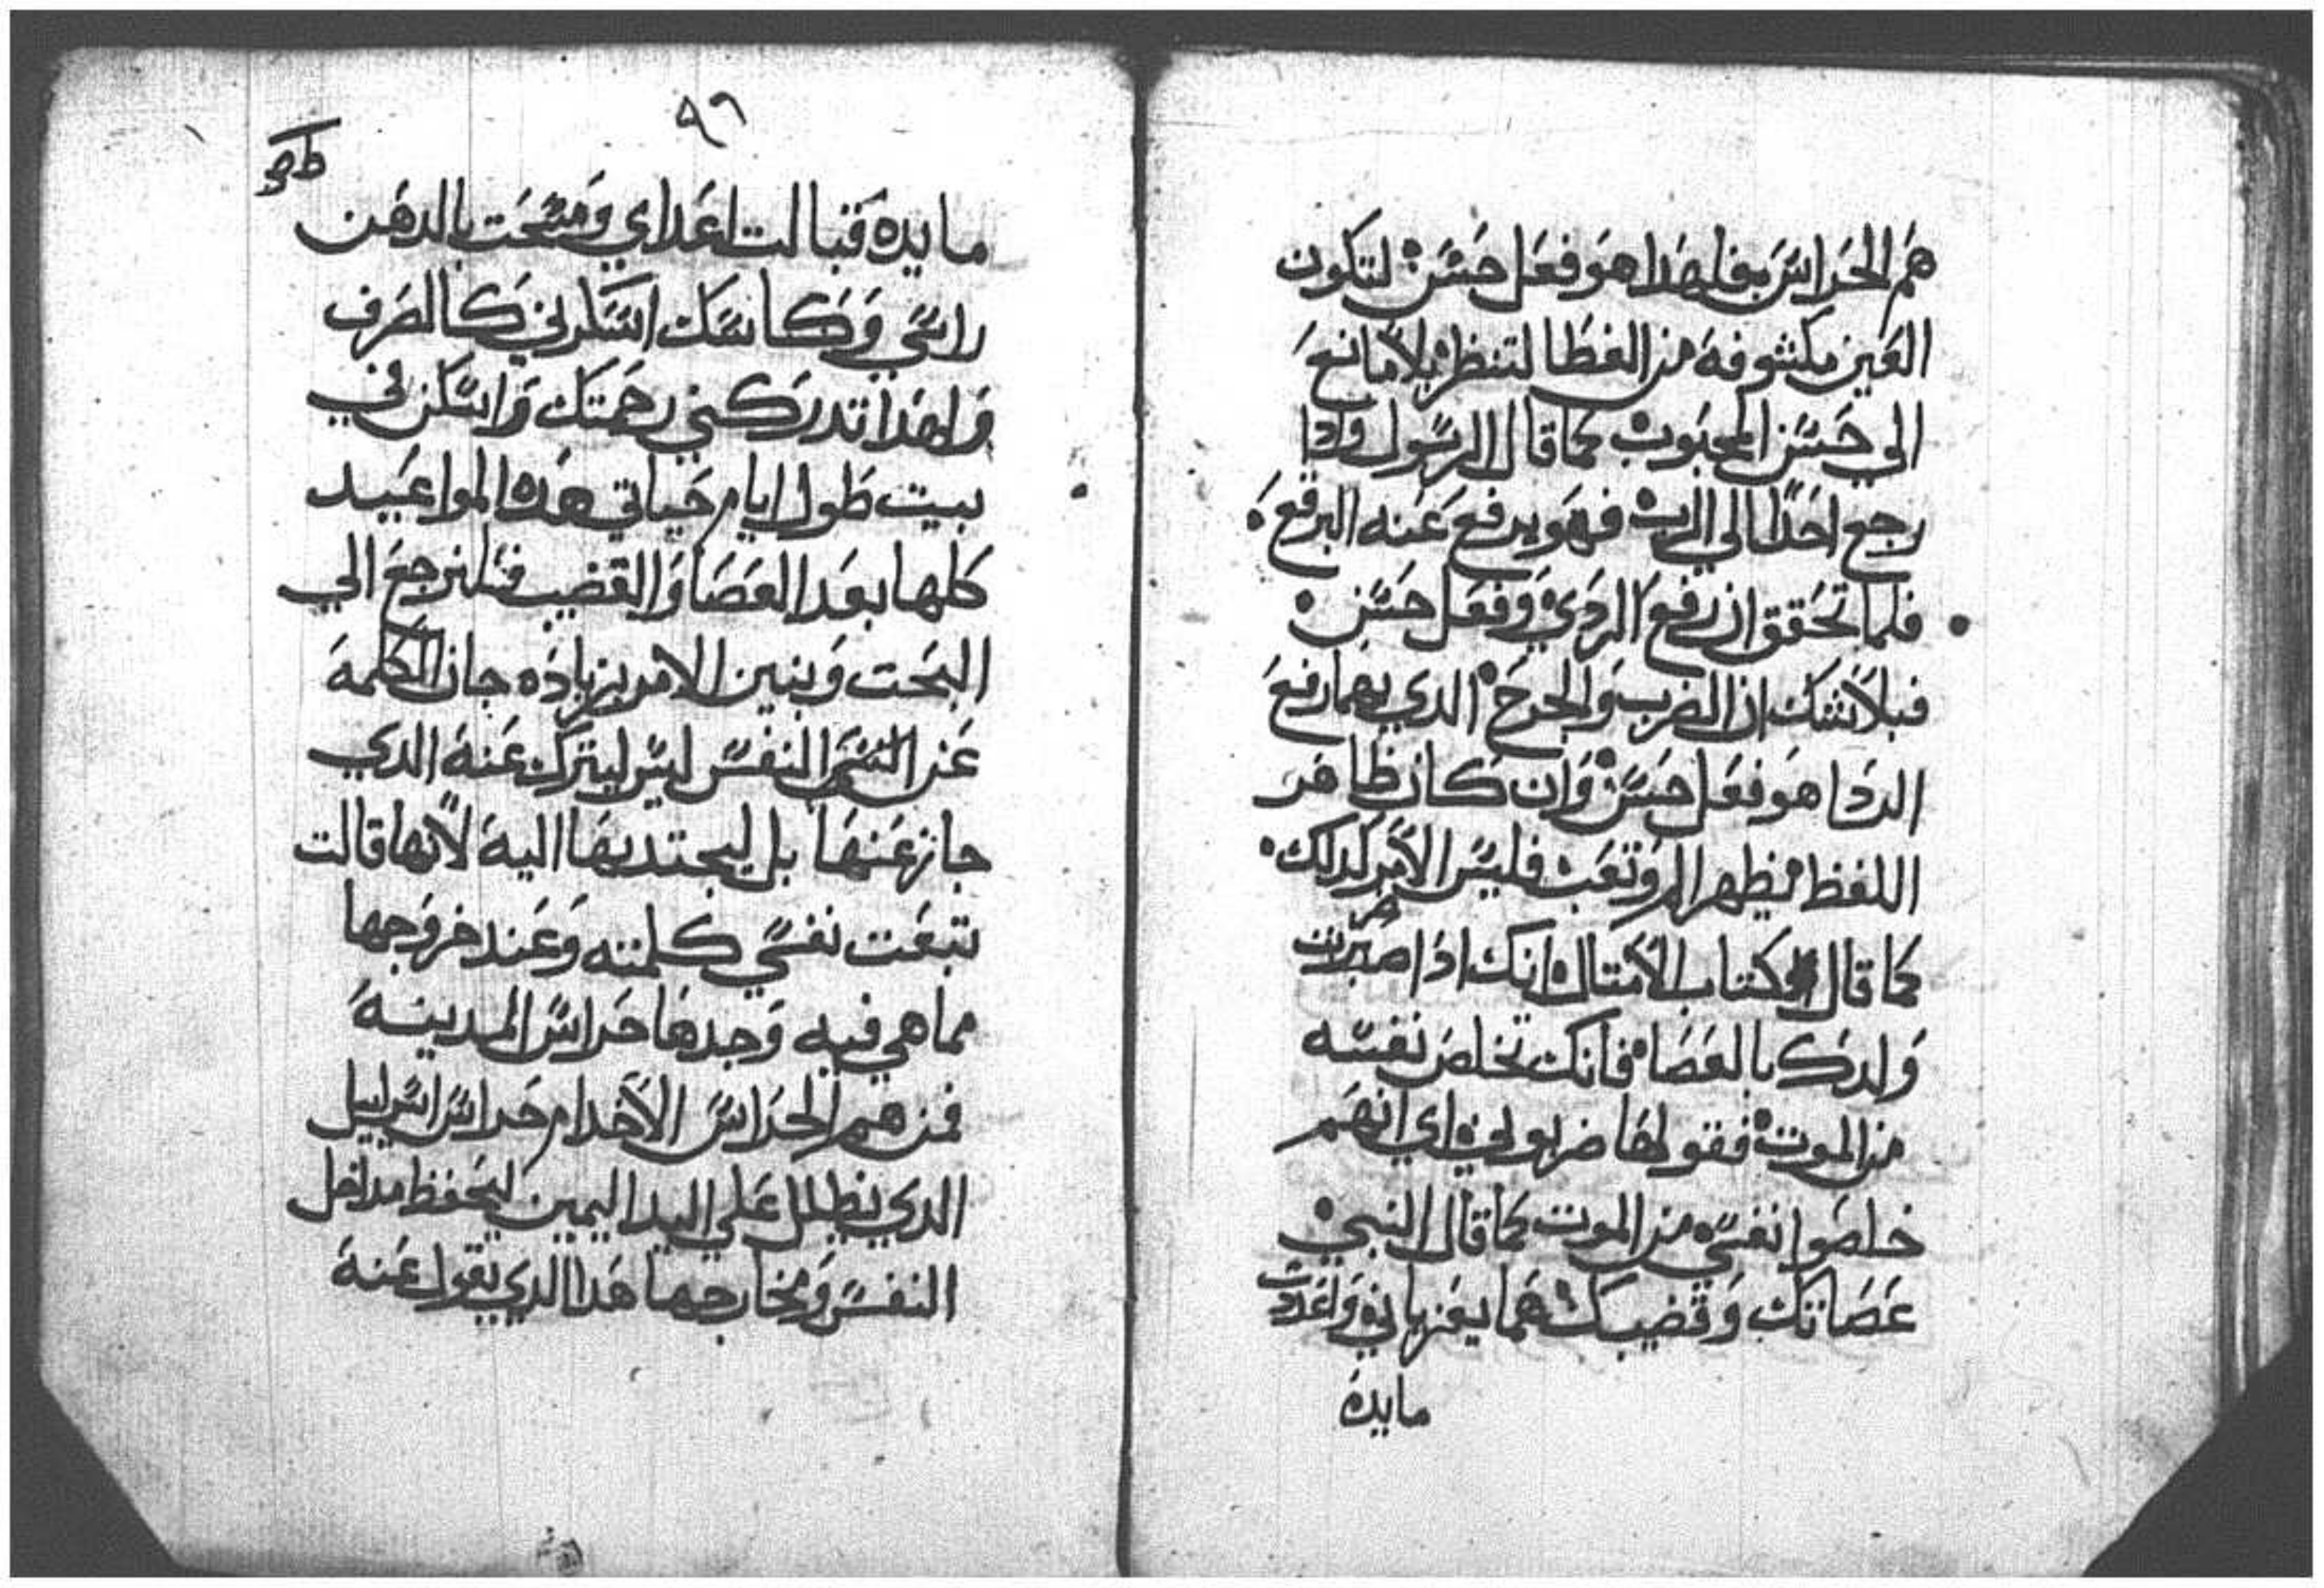 هم الحراس بفلهدا هو فعل حسن لتكون
العين مكشوفه من الغطا لتنظر بلا مانع
الي حسن المحبوب كما قال الرسول وادا
رجع احدا الي الرب فهو يرفع عنه البرقع
فلما تحقق ان رفع الردي وفعل حسن
فبلا شك ان الضرب والجرح الدي بهما رفع
الردا هو فعل حسن وان كان ظاهر
اللفظ يظهر الم وتعب فليس الامر كدلك
كما قال كتاب الامتال انك ادا ضربت
ولدك بالعصا فانك تخلص نفسه
من الموت فقولها ضربوني اي انهم
خلصوا نفسي من الموت كما قال النبي
عصاتك وقضيبك هما يعزياني واعددت
مايدة
٩٦
مايده قبالت اعداي ومسحت بالدهن
راسي وكاسك اسكرني كالصرف
ولهدا تدركني رحمتك واسكن في
بيت طول ايام حياتي هده المواعيد
كلها بعد العصا والقضيب فلنرجع الي
البحت ونبين الامر بزياده جاز الكلمة
عن النفس ليس ليترك عنه الدي
جاز عنها بل ليجتديها اليه لانها قالت
تبعت نفسي كلمته وعند خروجها
مما هي فيه وجدها حراس المدينة
فمن هم الحراس الا خدام حراس اسراييل
الدي يظلل علي اليد اليمين ليحفظ مداخل
النفس ومخارجها هدا الدي يقول عنه